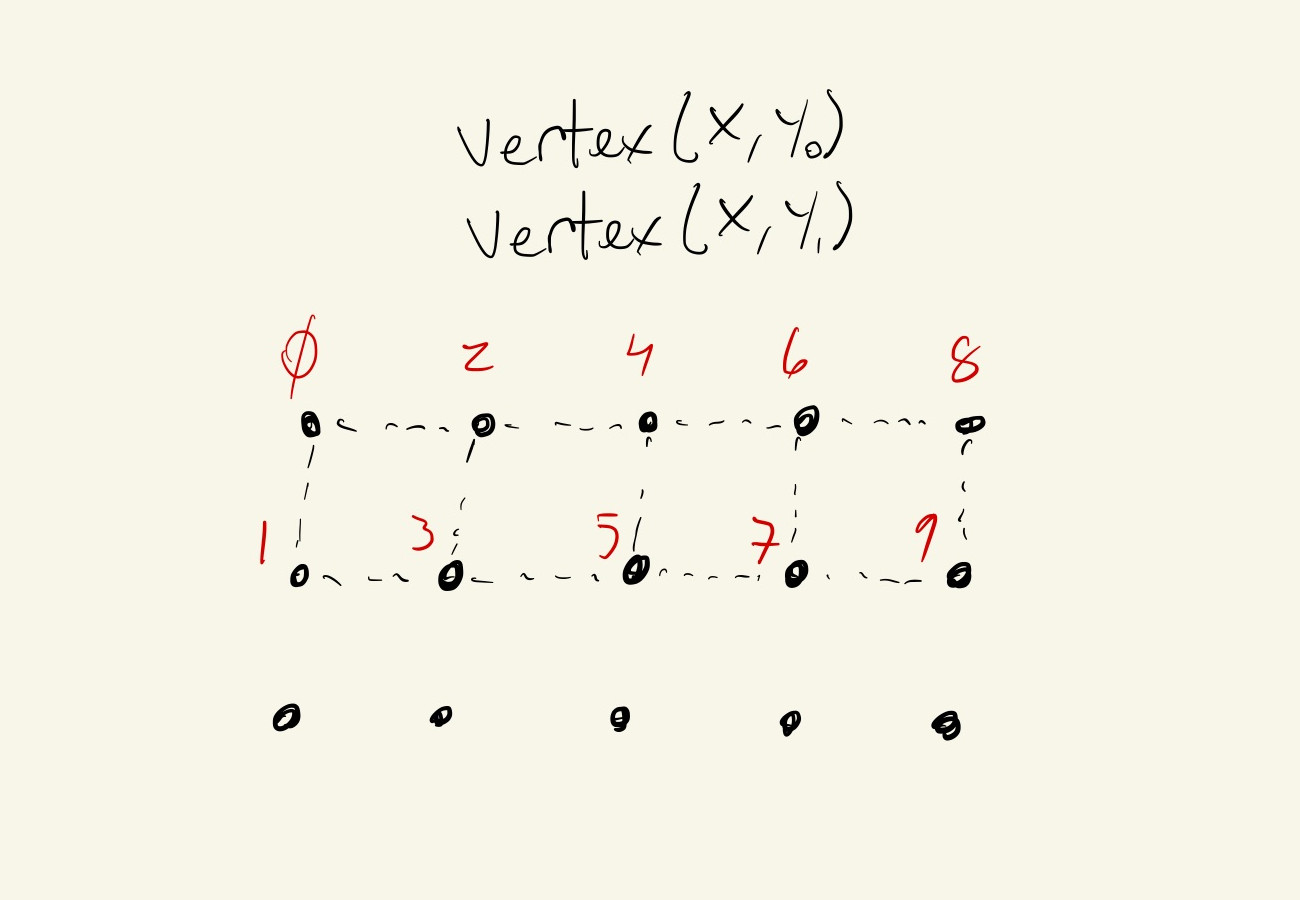 vertex(x,y₀)
vertex(x,y₁)
0 2 4 6 8
1 3 5 7 9